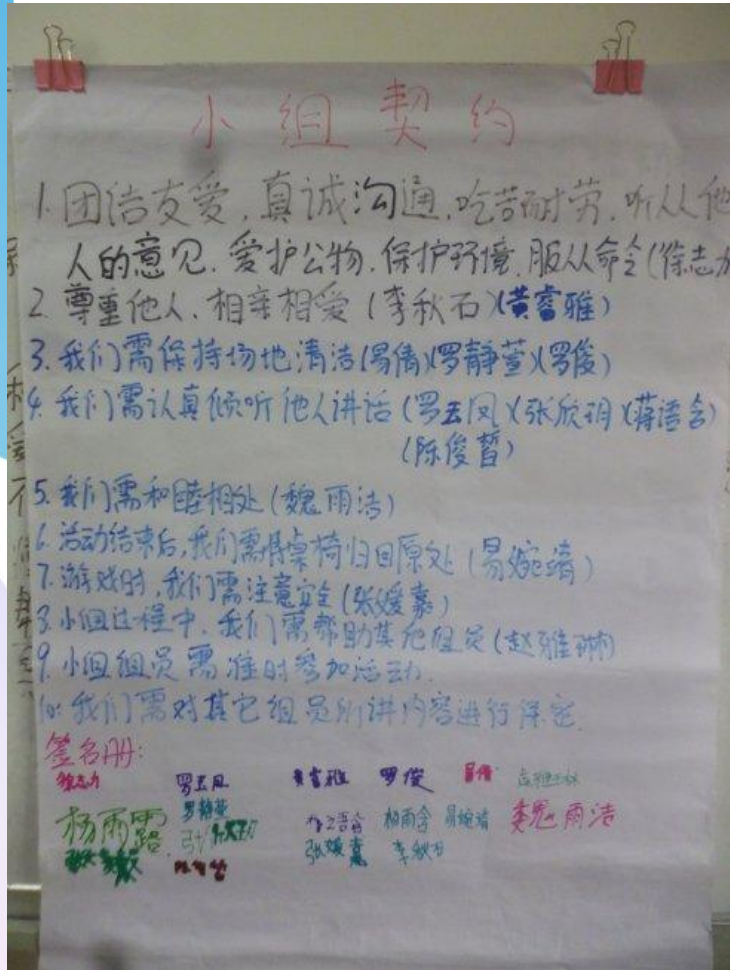 小组契约
1.团洁友爱.真诚沟通.吃苦耐劳.听从他
人的意见.爱护公物.保护环境.服从命令(徐志力
2.尊重他人.相亲相爱(李秋石)(黄睿雅)
3.我们需保持场地清洁(易倩)(罗静萱)(罗俊)
4.我们需认真倾听他人讲话(罗玉凤)(张欣玥)(蒋语含)
(陈俊皙)
5.我们需和睦相处(魏雨洁)
6.活动结束后,我们需将桌椅归回原处(易婉靖)
7.游戏时,我们需注意安全(张媛嘉)
8.小组过程中,我们需帮助其他组员(赵雅琳)
9.小组组员需准时参加活动.
10:我们需对其它组员所讲内容进行保密.
签名册:
徐志力 罗玉凤 黄睿雅 罗俊 易倩
杨雨露 罗静萱 杨雨含 易婉靖 魏雨洁
张媛嘉 李秋石